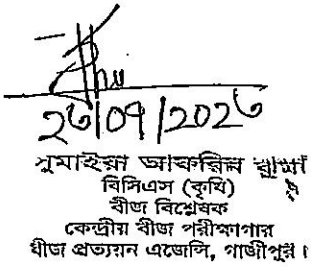 ২৩/০৭/২০২৩
সুমাইয়া আফরিন রুমা
বিসিএস (কৃষি)
বীজ বিশ্লেষক
কেন্দ্রীয় বীজ পরীক্ষাগার
বীজ প্রত্যয়ন এজেন্সি, গাজীপুর।